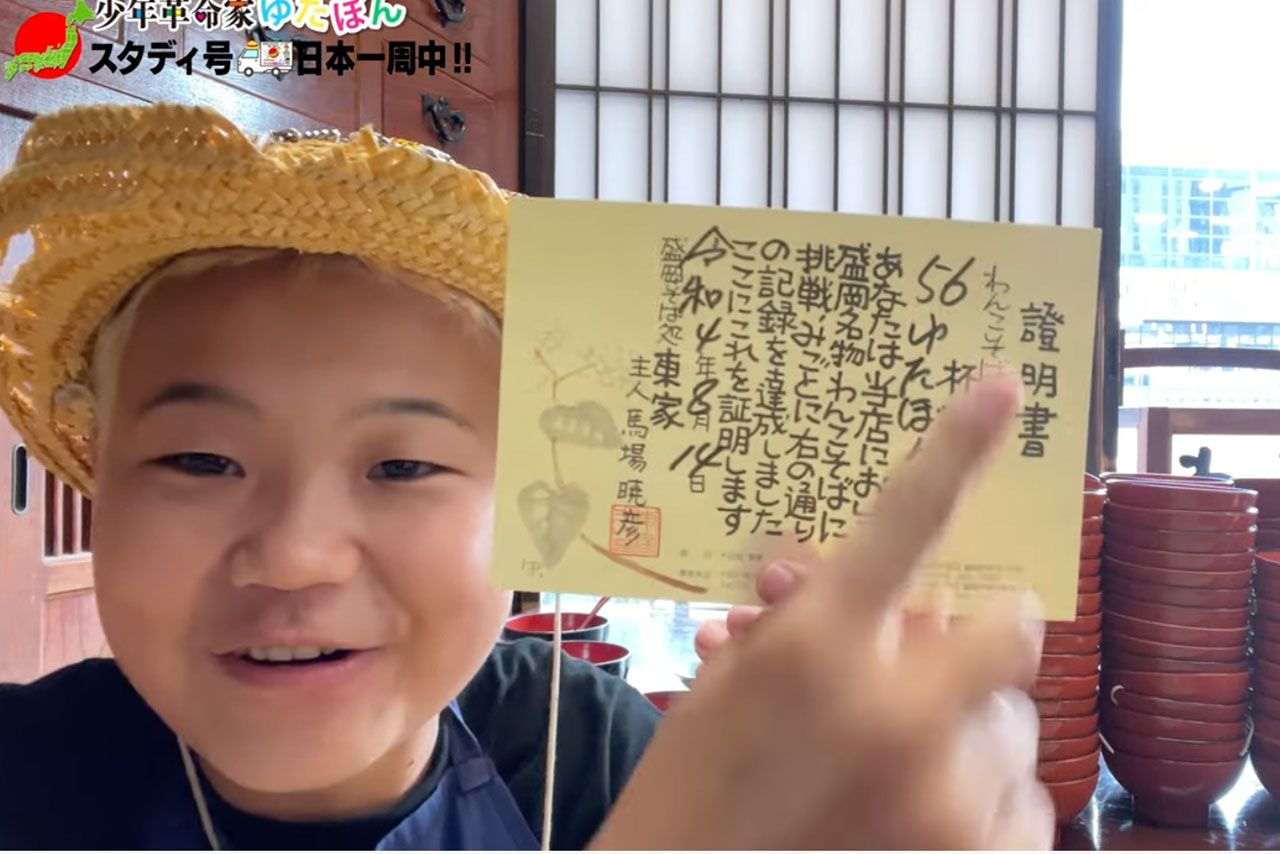 少年革命家ゆたぼん
スタディ号日本一周中!!
證明書
わんこそば
56杯
ゆたぼん
あなたは当店におい
盛岡名物わんこそばに
挑戦みごとに右の通り
の記録を達成しました
ここにこれを証明します
令和4年8月14日
盛岡そば処 東家
主人 馬場暁彦